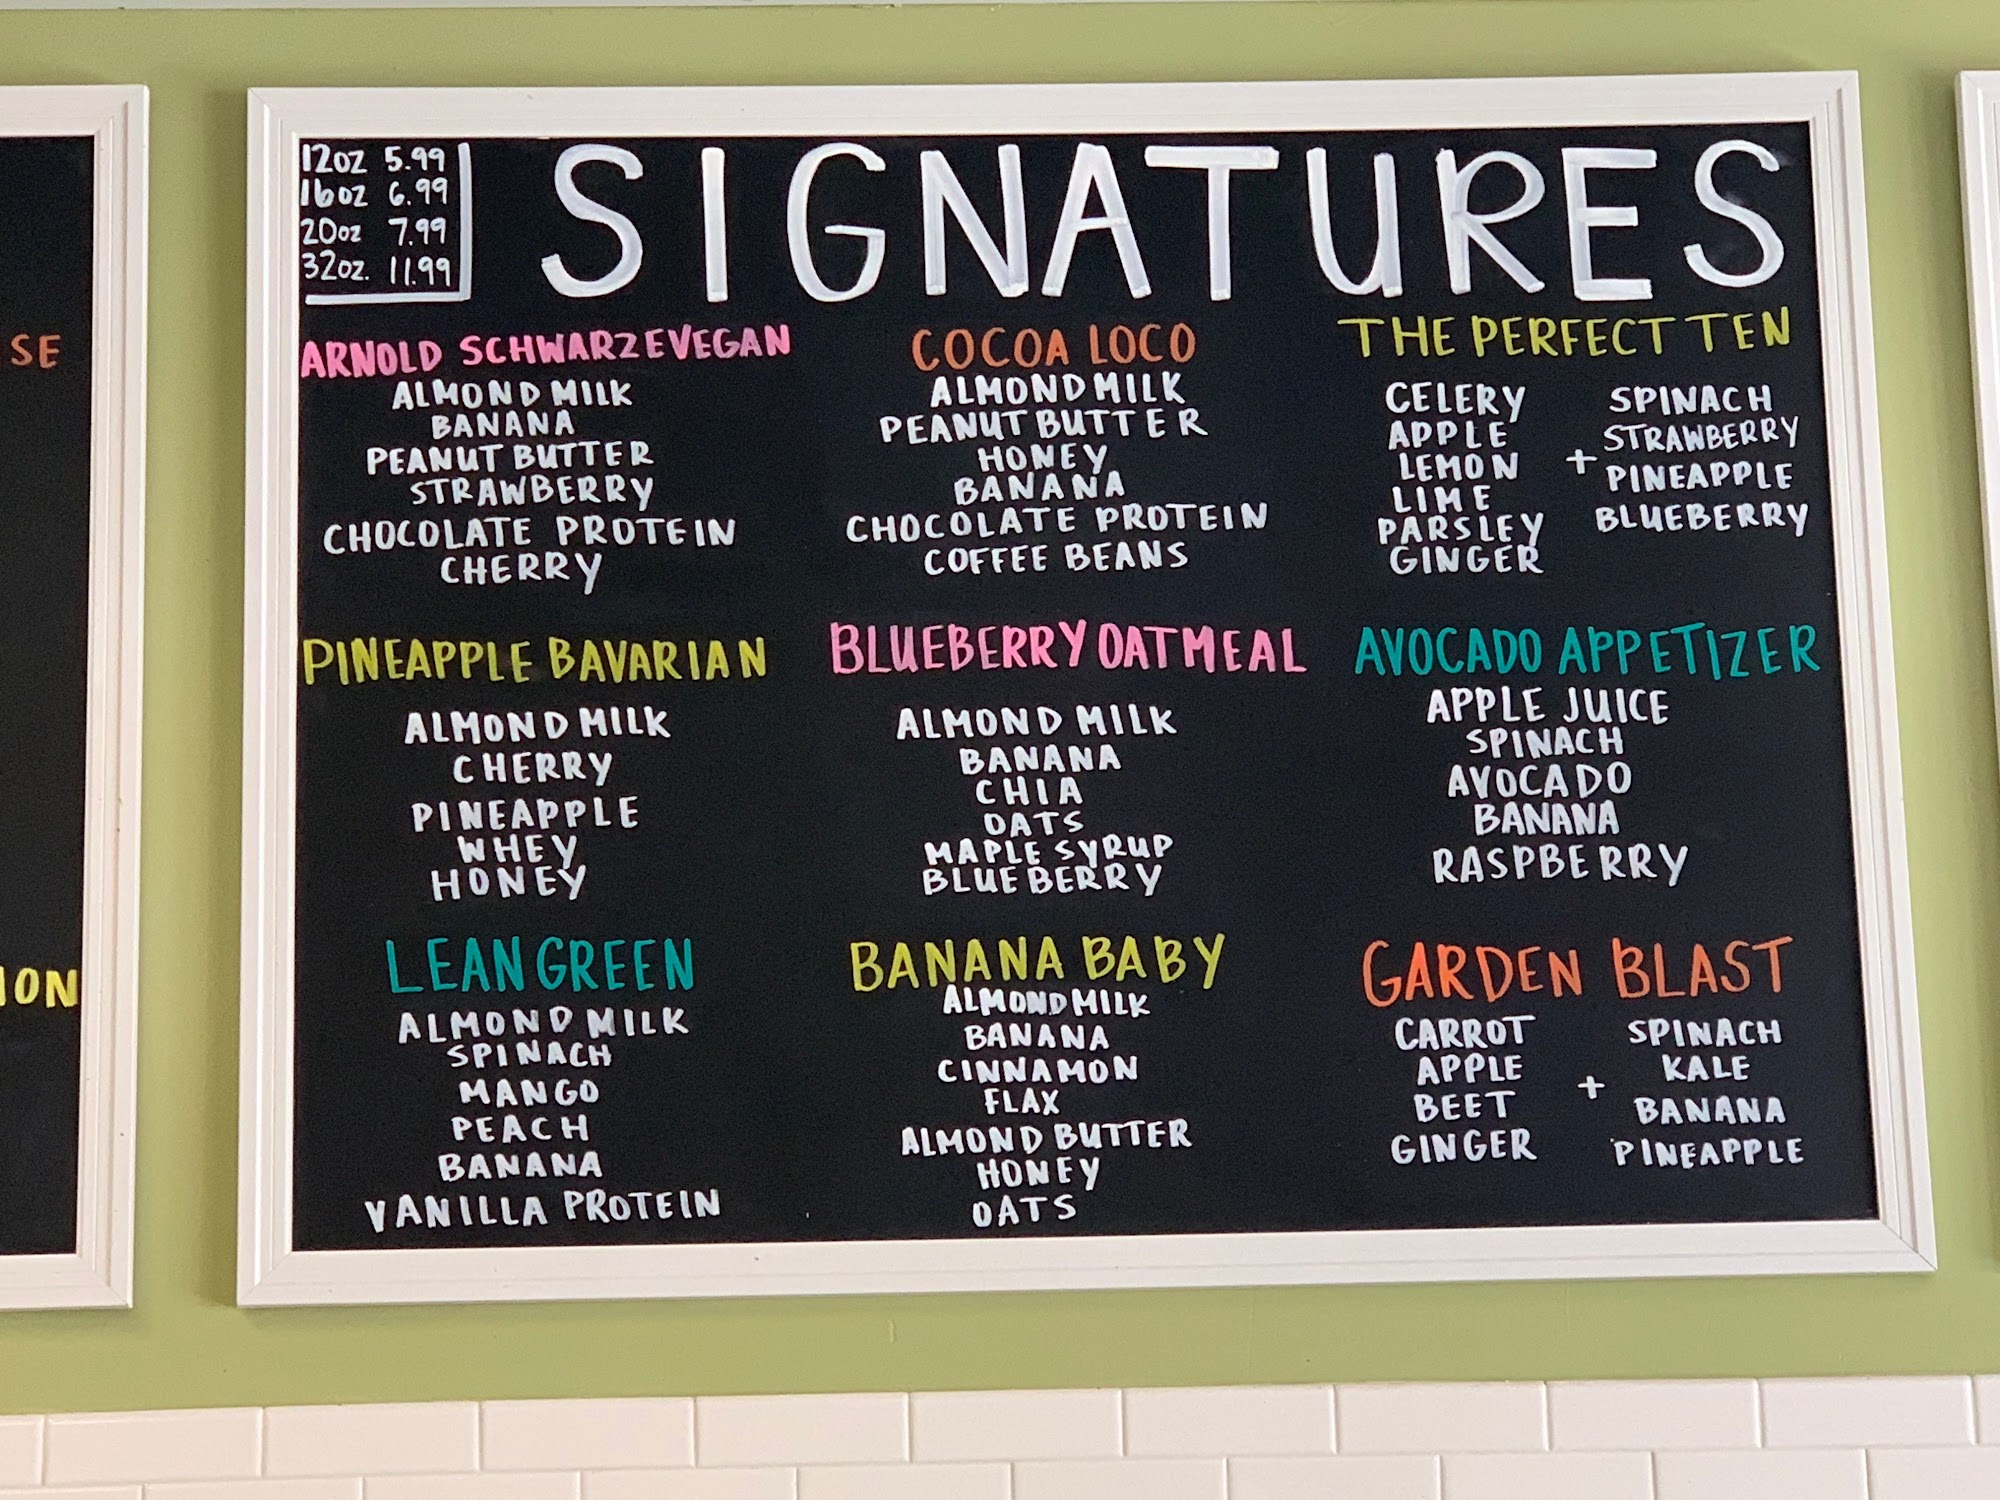 12oz 5.99
16oz 6.99
20oz 7.99
32oz. 11.99
SIGNATURES
ARNOLD SCHWARZEVEGAN
ALMOND MILK
BANANA
PEANUT BUTTER
STRAWBERRY
CHOCOLATE PROTEIN
CHERRY
COCOA LOCO
ALMOND MILK
PEANUT BUTTER
HONEY
BANANA
CHOCOLATE PROTEIN
COFFEE BEANS
THE PERFECT TEN
CELERY
APPLE
LEMON
LIME
PARSLEY
GINGER
+
SPINACH
STRAWBERRY
PINEAPPLE
BLUEBERRY
PINEAPPLE BAVARIAN
ALMOND MILK
CHERRY
PINEAPPLE
WHEY
HONEY
BLUEBERRY OATMEAL
ALMOND MILK
BANANA
CHIA
OATS
MAPLE SYRUP
BLUEBERRY
AVOCADO APPETIZER
APPLE JUICE
SPINACH
AVOCADO
BANANA
RASPBERRY
LEAN GREEN
ALMOND MILK
SPINACH
MANGO
PEACH
BANANA
VANILLA PROTEIN
BANANA BABY
ALMOND MILK
BANANA
CINNAMON
FLAX
ALMOND BUTTER
HONEY
OATS
GARDEN BLAST
CARROT
APPLE
BEET
GINGER
+
SPINACH
KALE
BANANA
PINEAPPLE
SE
ION